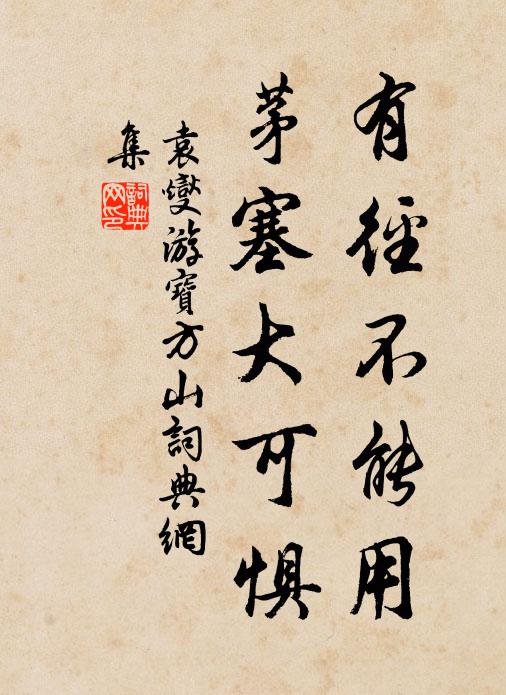 有徑不能用
茅塞大可惧
袁燮游寶方山詞典網
集
詞典
网印